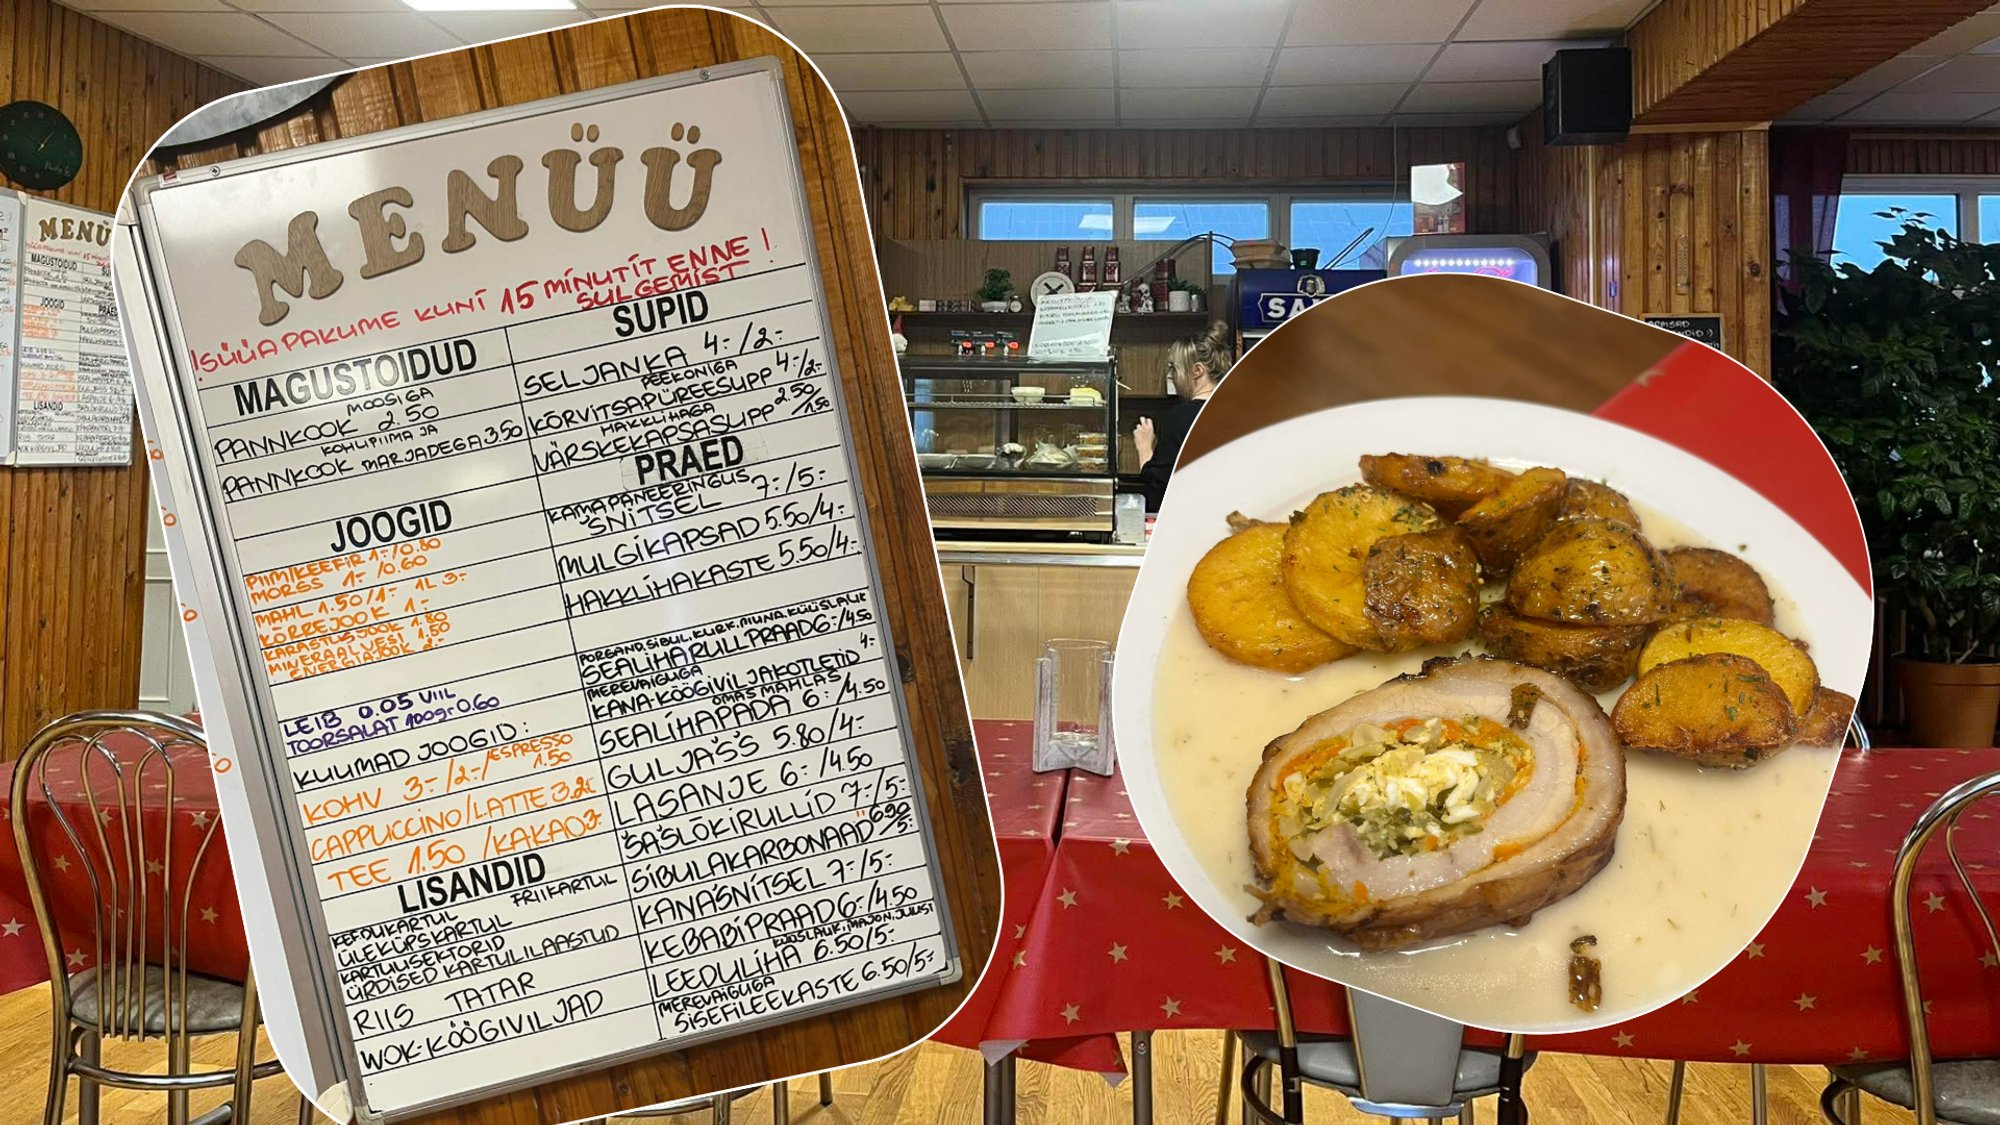 MENÜÜ
!SÜÜA PAKUME KUNI 15 MINUTIT ENNE
SULGEMIST !
MAGUSTOIDUD
MOOSIGA
PANNKOOK 2.50
KOHUPIIMA JA
PANNKOOK MARJADEGA 3.50
JOOGID
PIIM/KEEFIR 1.-/0.80
MORSS 1.-/0.60
MAHL 1.50/1.- 1L 3.-
KÕRREJOOK 1.-
KARASTUSJOOK 1.80
MINERAALVESI 1.50
ENERGIAJOOK 2.-
LEIB 0.05 VIIL
TOORSALAT 100gr 0.60
KUUMAD JOOGID:
KOHV 3.-/2.-/ESPRESSO
1.50
CAPPUCCINO/LATTE 3.2€
TEE 1.50 /KAKAO 3.-
LISANDID
FRIIKARTUL
KEEDUKARTUL
ÜLEKÜPSKARTUL
KARTULISEKTORID
ÜRDISED KARTULILAASTUD
RIIS TATAR
WOK-KÖÖGIVILJAD
SUPID
SELJANKA 4.-/2.-
PEEKONIGA
KÕRVITSAPÜREESUPP 4.-/2.-
HAKKLIHAGA
VÄRSKEKAPSASUPP 2.50/1.50
PRAED
KAMA PANEERINGUS
ŠNITSEL 7.-/5.-
MULGIKAPSAD 5.50/4.-
HAKKLIHAKASTE 5.50/4.-
PORGAND, SIBUL, KURK, MUNA, KÜÜSLAUK
SEALIHARULLPRAAD 6.-/4.50
MEREVAIGUGA
KANA-KÖÖGIVILJAKOTLETID 4.-
OMAS MAHLAS
SEALIHAPADA 6.-/4.50
GULJAŠŠ 5.80/4.-
LASANJE 6.-/4.50
ŠAŠLÕKIRULLID 7.-/5.-
SIBULAKARBONAAD 6.90/5.-
KANAŠNITSEL 7.-/5.-
KEBABIPRAAD 6.-/4.50
KÜÜSLAUK, MAJON, JUUST
LEEDULIHA 6.50/5.-
MEREVAIGUGA
SISEFILEEKASTE 6.50/5.-
MENÜÜ
MAGUSTOIDUD
JOOGID
LISANDID